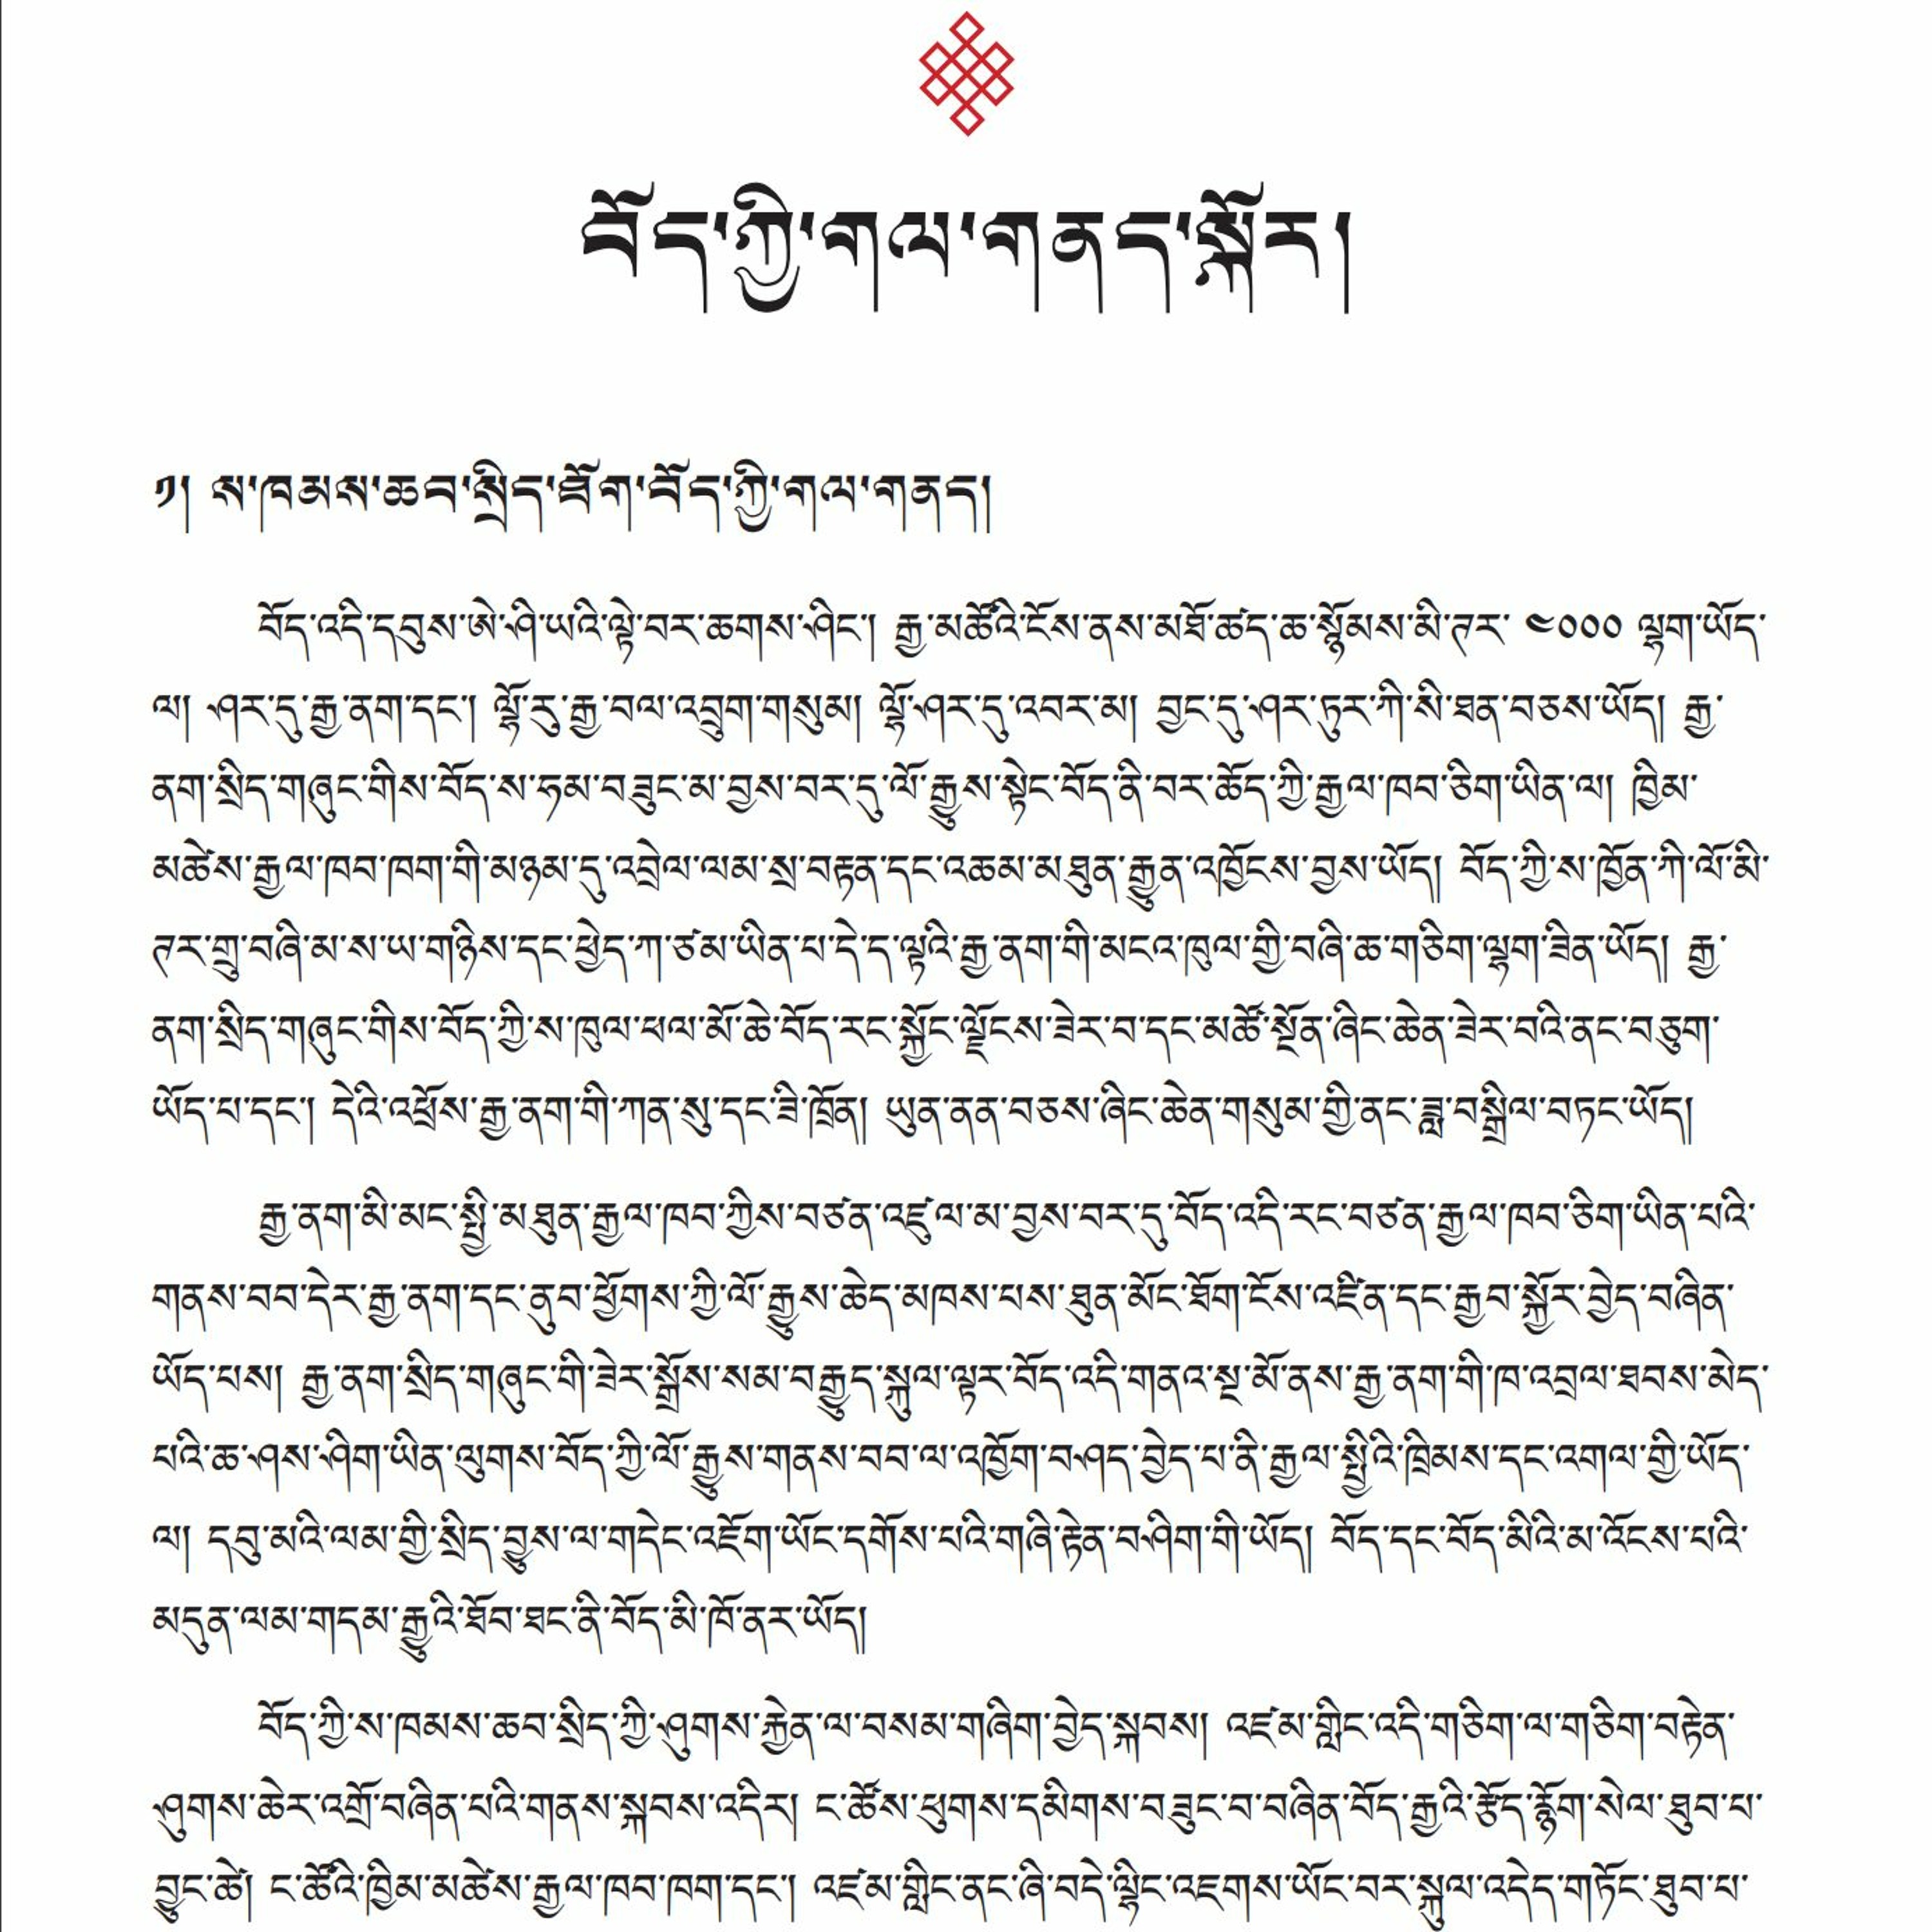 བོད་ཀྱི་གལ་གནད་སྐོར།
༡། ས་ཁམས་ཆབ་སྲིད་ཐོག་བོད་ཀྱི་གལ་གནད།
བོད་འདི་དབུས་ཨེ་ཤི་ཡའི་ལྟེ་བར་ཆགས་ཤིང་། རྒྱ་མཚོའི་ངོས་ནས་མཐོ་ཚད་ཆ་སྙོམས་མི་ཊར་ ༤༠༠༠ ལྷག་ཡོད་
ལ། ཤར་དུ་རྒྱ་ནག་དང་། ལྷོ་རུ་རྒྱ་བལ་འབྲུག་གསུམ། ལྷོ་ཤར་དུ་འབར་མ། བྱང་དུ་ཤར་ཏུར་ཀི་སི་ཐན་བཅས་ཡོད། རྒྱ་
ནག་སྲིད་གཞུང་གིས་བོད་ས་ཧམ་བཟུང་མ་བྱས་བར་དུ་ལོ་རྒྱུས་སྟེང་བོད་ནི་བར་ཆོད་ཀྱི་རྒྱལ་ཁབ་ཅིག་ཡིན་ལ། ཁྱིམ་
མཚེས་རྒྱལ་ཁབ་ཁག་གི་མཉམ་དུ་འབྲེལ་ལམ་སྲ་བརྟན་དང་འཆམ་མཐུན་རྒྱུན་འཁྱོངས་བྱས་ཡོད། བོད་ཀྱི་ས་ཁྱོན་ཀི་ལོ་མི་
ཊར་གྲུ་བཞི་མ་ས་ཡ་གཉིས་དང་ཕྱེད་ཀ་ཙམ་ཡིན་པ་དེ་ད་ལྟའི་རྒྱ་ནག་གི་མངའ་ཁུལ་གྱི་བཞི་ཆ་གཅིག་ལྷག་ཟིན་ཡོད། རྒྱ་
ནག་སྲིད་གཞུང་གིས་བོད་ཀྱི་ས་ཁུལ་ཕལ་མོ་ཆེ་བོད་རང་སྐྱོང་ལྗོངས་ཟེར་བ་དང་མཚོ་སྔོན་ཞིང་ཆེན་ཟེར་བའི་ནང་བཅུག་
ཡོད་པ་དང་། དེའི་འཕྲོས་རྒྱ་ནག་གི་ཀན་སུ་དང་ཟི་ཁྲོན། ཡུན་ནན་བཅས་ཞིང་ཆེན་གསུམ་གྱི་ནང་ཟླ་བསྒྲིལ་བཏང་ཡོད།
རྒྱ་ནག་མི་མང་སྤྱི་མཐུན་རྒྱལ་ཁབ་ཀྱིས་བཙན་འཛུལ་མ་བྱས་བར་དུ་བོད་འདི་རང་བཙན་རྒྱལ་ཁབ་ཅིག་ཡིན་པའི་
གནས་བབ་དེར་རྒྱ་ནག་དང་ནུབ་ཕྱོགས་ཀྱི་ལོ་རྒྱུས་ཆེད་མཁས་པས་ཐུན་མོང་ཐོག་ངོས་འཛིན་དང་རྒྱབ་སྐྱོར་བྱེད་བཞིན་
ཡོད་པས། རྒྱ་ནག་སྲིད་གཞུང་གི་ཟེར་སྒྲོས་སམ་བརྒྱུད་སྐུལ་ལྟར་བོད་འདི་གནའ་སྔ་མོ་ནས་རྒྱ་ནག་གི་ཁ་འབྲལ་ཐབས་མེད་
པའི་ཆ་ཤས་ཤིག་ཡིན་ལུགས་བོད་ཀྱི་ལོ་རྒྱུས་གནས་བབ་ལ་འཁྱོག་བཤད་བྱེད་པ་ནི་རྒྱལ་སྤྱིའི་ཁྲིམས་དང་འགལ་གྱི་ཡོད་
ལ། དབུ་མའི་ལམ་གྱི་སྲིད་བྱུས་ལ་གདེང་འཇོག་ཡོང་དགོས་པའི་གཞི་རྟེན་བཤིག་གི་ཡོད། བོད་དང་བོད་མིའི་མ་འོངས་པའི་
མདུན་ལམ་གདམ་རྒྱུའི་ཐོབ་ཐང་ནི་བོད་མི་ཁོ་ནར་ཡོད།
བོད་ཀྱི་ས་ཁམས་ཆབ་སྲིད་ཀྱི་ཤུགས་རྐྱེན་ལ་བསམ་གཞིག་བྱེད་སྐབས། འཛམ་གླིང་འདི་གཅིག་ལ་གཅིག་བརྟེན་
ཤུགས་ཆེར་འགྲོ་བཞིན་པའི་གནས་སྐབས་འདིར། ང་ཚོས་ཕུགས་དམིགས་བཟུང་བ་བཞིན་བོད་རྒྱའི་རྩོད་རྙོག་སེལ་ཐུབ་པ་
བྱུང་ཚེ། ང་ཚོའི་ཁྱིམ་མཚེས་རྒྱལ་ཁབ་ཁག་དང་། འཛམ་གླིང་ནང་ཞི་བདེ་ལྷིང་འཇགས་ཡོང་བར་སྐུལ་འདེད་གཏོང་ཐུབ་པ་